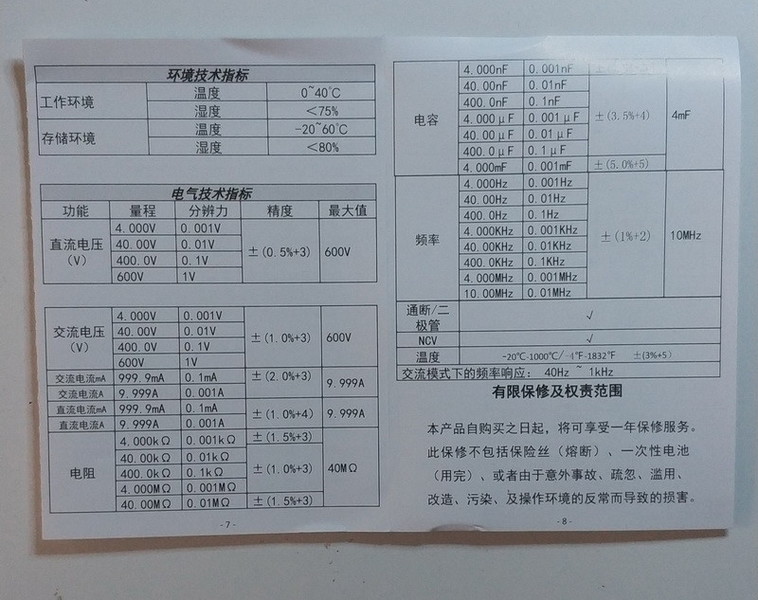 环境技术指标
工作环境 温度 0~40℃
湿度 <75%
存储环境 温度 -20~60℃
湿度 <80%
电气技术指标
功能 量程 分辨力 精度 最大值
直流电压(V) 4.000V 0.001V ±(0.5%+3) 600V
40.00V 0.01V
400.0V 0.1V
600V 1V
交流电压(V) 4.000V 0.001V ±(1.0%+3) 600V
40.00V 0.01V
400.0V 0.1V
600V 1V
交流电流mA 999.9mA 0.1mA ±(2.0%+3) 9.999A
交流电流A 9.999A 0.001A
直流电流mA 999.9mA 0.1mA ±(1.0%+4) 9.999A
直流电流A 9.999A 0.001A
电阻 4.000kΩ 0.001kΩ ±(1.5%+3) 40MΩ
40.00kΩ 0.01kΩ ±(1.0%+3)
400.0kΩ 0.1kΩ
4.000MΩ 0.001MΩ
40.00MΩ 0.01MΩ ±(1.5%+3)
-7-
电容 4.000nF 0.001nF 4mF
40.00nF 0.01nF ±(3.5%+4)
400.0nF 0.1nF
4.000μF 0.001μF
40.00μF 0.01μF
400.0μF 0.1μF
4.000mF 0.001mF ±(5.0%+5)
频率 4.000Hz 0.001Hz ±(1%+2) 10MHz
40.00Hz 0.01Hz
400.0Hz 0.1Hz
4.000KHz 0.001KHz
40.00KHz 0.01KHz
400.0KHz 0.1KHz
4.000MHz 0.001MHz
10.00MHz 0.01MHz
通断/二极管 √
NCV √
温度 -20℃-1000℃/-4℉-1832℉ ±(3%+5)
交流模式下的频率响应: 40Hz ~ 1kHz
有限保修及权责范围
本产品自购买之日起,将可享受一年保修服务。
此保修不包括保险丝(熔断)、一次性电池
(用完)、或者由于意外事故、疏忽、滥用、
改造、污染、及操作环境的反常而导致的损害。
-8-